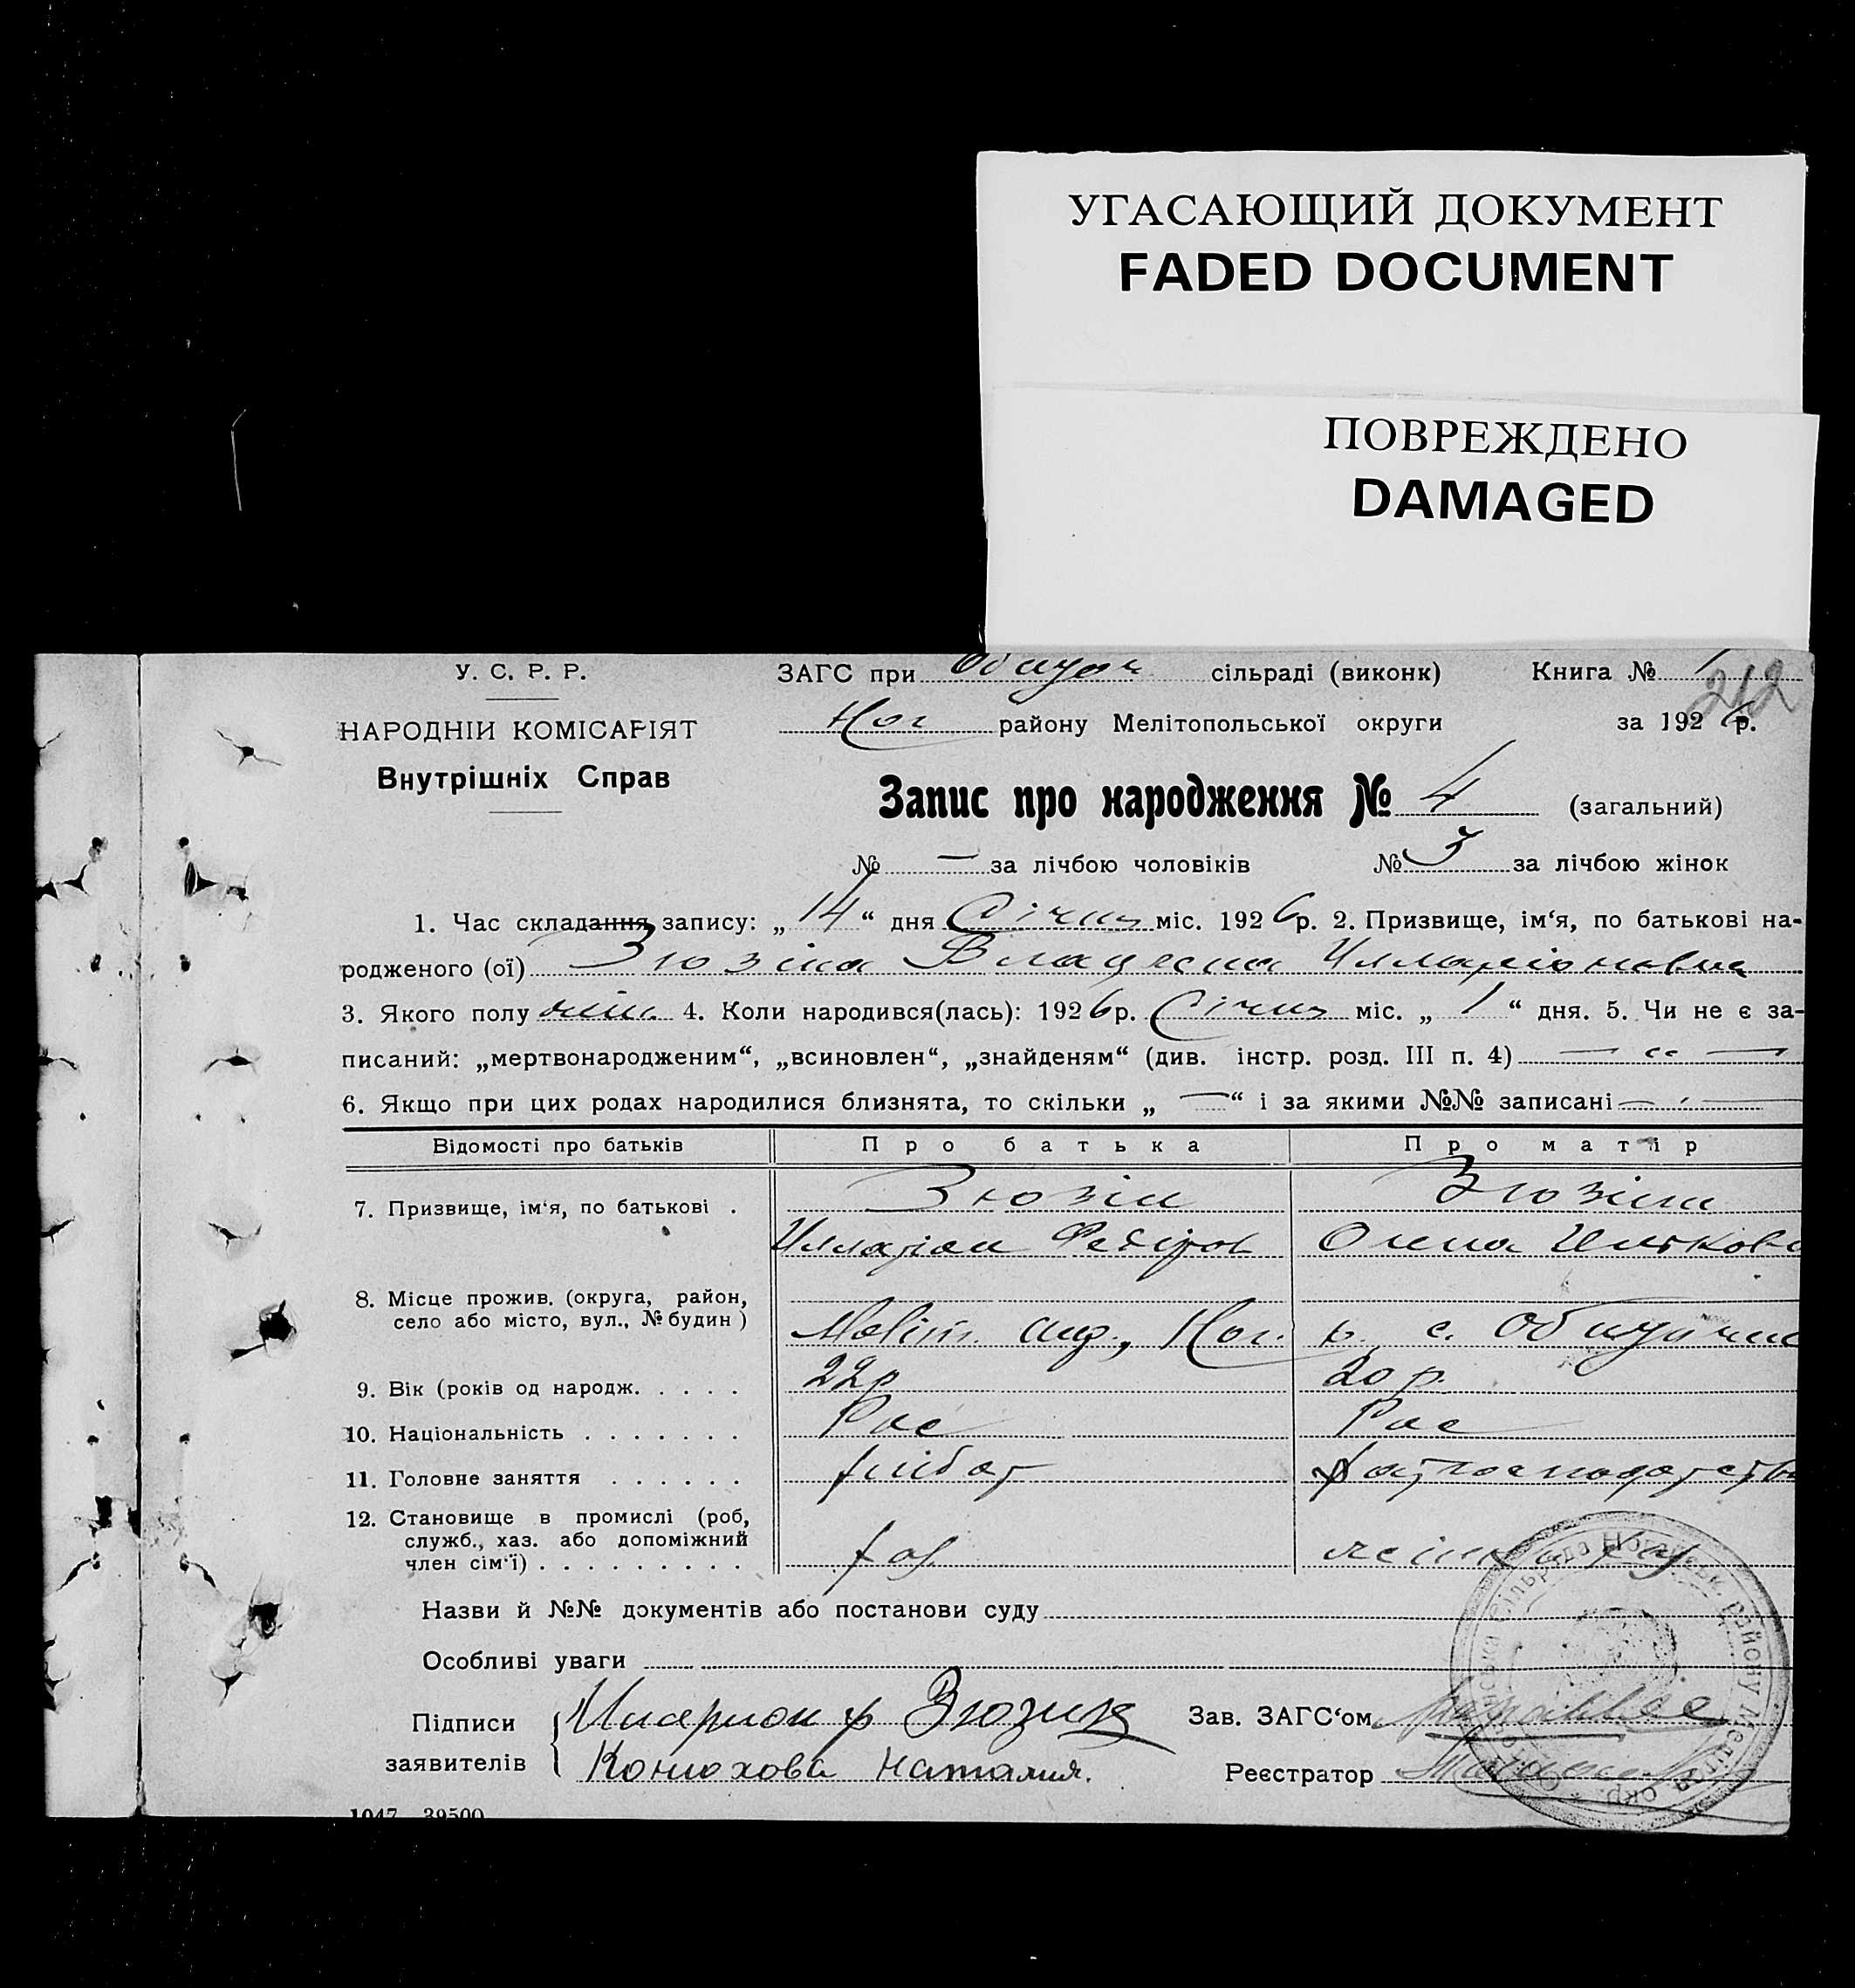 УГАСАЮЩИЙ ДОКУМЕНТ
FADED DOCUMENT
ПОВРЕЖДЕНО
DAMAGED
У. С. Р. Р.
ЗАГС при сільраді (виконк) Книга № 1
212
НАРОДНІЙ КОМІСАРІЯТ
Внутрішніх Справ
Ног району Мелітопольської округи за 1926 р.
Запис про народження № 4 (загальний)
№ — за лічбою чоловіків № 3 за лічбою жінок
1. Час складання запису: „ 14 “ дня Січня міс. 1926 р. 2. Призвище, ім‘я, по батькові на-
родженого (ої) Зюзіна Илларіоновна
3. Якого полу жін. 4. Коли народився(лась): 1926 р. Січня міс. „ 1 “ дня. 5. Чи не є за-
писаний: „мертвонародженим“, „всиновлен“, „знайденям“ (див. інстр. розд. III п. 4) — „ —
6. Якщо при цих родах народилися близнята, то скільки „ — “ і за якими №№ записані — „ —
Відомості про батьків Про батька Про матір
7. Призвище, ім‘я, по батькові . Зюзін Зюзіна
Илларіон Федіров Олена
8. Місце прожив. (округа, район,
село або місто, вул., № будин )
Меліт. окр., Ног. р. с.
9. Вік (років од народж. . . . . 22 р 20 р.
10. Національність . . . . . . . Рос Рос
11. Головне заняття . . . . . . хлібор
12. Становище в промислі (роб,
служб., хаз. або допоміжний
член сім‘ї) . . . . . . . . . хаз
Назви й №№ документів або постанови суду
Особливі уваги
Підписи
заявителів
Илларион ф Зюзин
Конюхова Наталия.
Зав. ЗАГС‘ом
Реєстратор
1047 39500